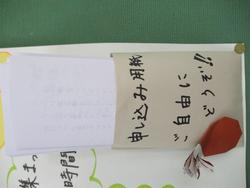 申し込み用紙
ご自由に
どうぞ!!
集まっ
時間